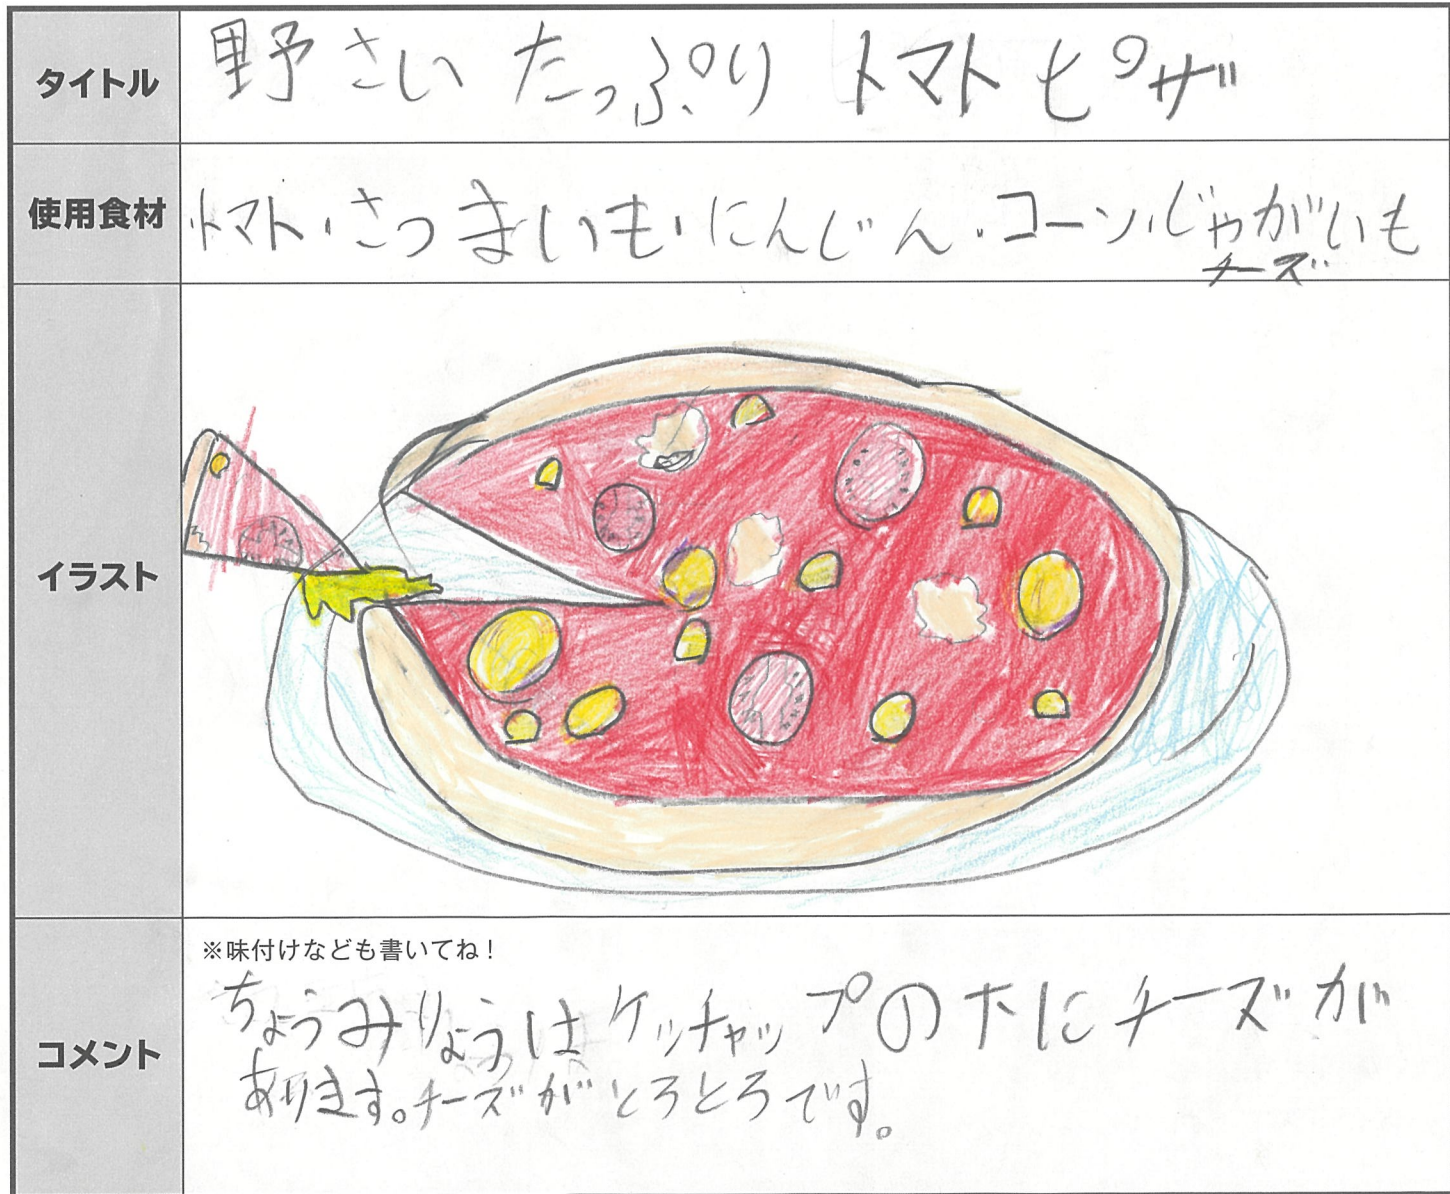 タイトル
野さい たっぷり トマト ピザ
使用食材
トマト・さつまいも・にんじん・コーン・じゃがいも
チーズ
イラスト
コメント
※味付けなども書いてね！
ちょうみりょうは ケッチャップの下にチーズが
あります。チーズがとろとろです。